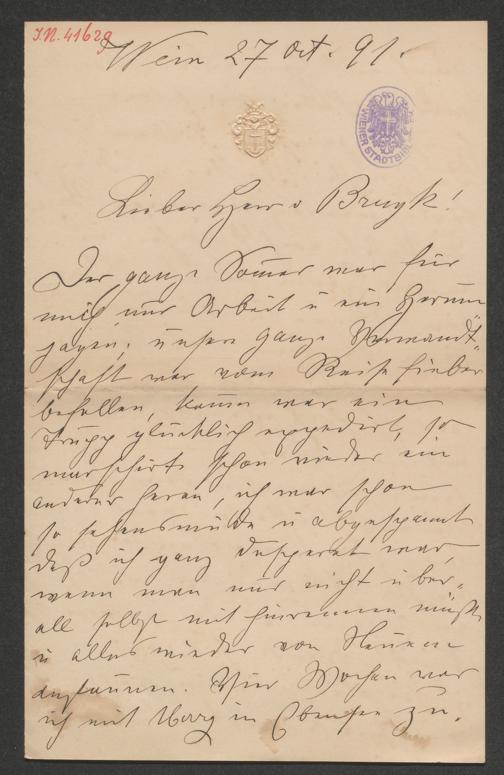 I.N. 41629
Wien 27 Oct. 91.
WIENER STADTBIBL
Lieber Herr v Bruyk!
Der ganze Som̅er war für
mich nur Arbeit u ein Herum
jagen; unsere ganze Verwandt¬
schaft war vom Reisefieber
befallen, kaum war ein
Trupp glücklich expedirt, so
marschirte schon wieder ein
anderer heran, ich war schon
so sehensmüde u abgespannt
daß ich ganz desperat war,
wenn man nur nicht über¬
all selbst mit hinrennen müßte
u alles wieder von Neuem
anstaunen. Vier Wochen war
ich mit Marg in Ebensee zu¬